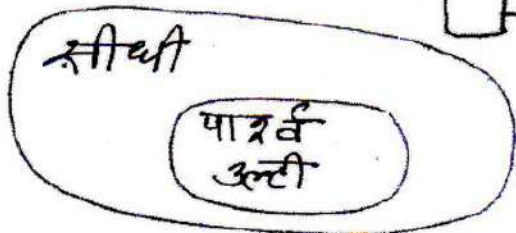 सीधी
पार्श्व
उल्टी